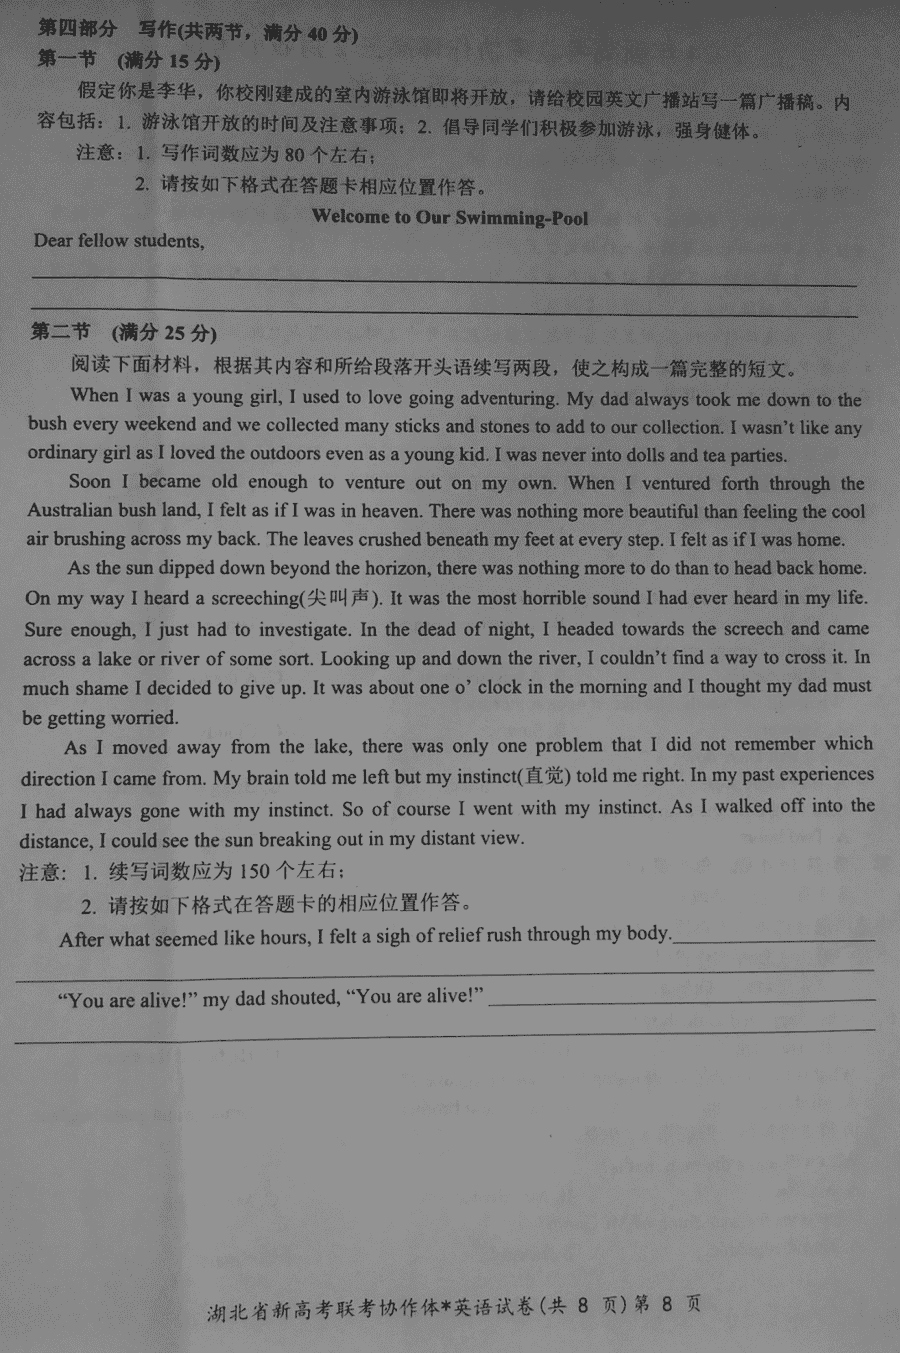 第四部分 写作(共两节，满分 40 分)
第一节 (满分 15 分)
假定你是李华，你校刚建成的室内游泳馆即将开放，请给校园英文广播站写一篇广播稿。内
容包括：1. 游泳馆开放的时间及注意事项；2. 倡导同学们积极参加游泳，强身健体。
注意：1. 写作词数应为 80 个左右；
2. 请按如下格式在答题卡相应位置作答。
Welcome to Our Swimming-Pool
Dear fellow students,
第二节 (满分 25 分)
阅读下面材料，根据其内容和所给段落开头语续写两段，使之构成一篇完整的短文。
When I was a young girl, I used to love going adventuring. My dad always took me down to the
bush every weekend and we collected many sticks and stones to add to our collection. I wasn't like any
ordinary girl as I loved the outdoors even as a young kid. I was never into dolls and tea parties.
Soon I became old enough to venture out on my own. When I ventured forth through the
Australian bush land, I felt as if I was in heaven. There was nothing more beautiful than feeling the cool
air brushing across my back. The leaves crushed beneath my feet at every step. I felt as if I was home.
As the sun dipped down beyond the horizon, there was nothing more to do than to head back home.
On my way I heard a screeching(尖叫声). It was the most horrible sound I had ever heard in my life.
Sure enough, I just had to investigate. In the dead of night, I headed towards the screech and came
across a lake or river of some sort. Looking up and down the river, I couldn't find a way to cross it. In
much shame I decided to give up. It was about one o' clock in the morning and I thought my dad must
be getting worried.
As I moved away from the lake, there was only one problem that I did not remember which
direction I came from. My brain told me left but my instinct(直觉) told me right. In my past experiences
I had always gone with my instinct. So of course I went with my instinct. As I walked off into the
distance, I could see the sun breaking out in my distant view.
注意：1. 续写词数应为 150 个左右；
2. 请按如下格式在答题卡的相应位置作答。
After what seemed like hours, I felt a sigh of relief rush through my body.
“You are alive!” my dad shouted, “You are alive!”
湖北省新高考联考协作体*英语试卷(共 8 页)第 8 页